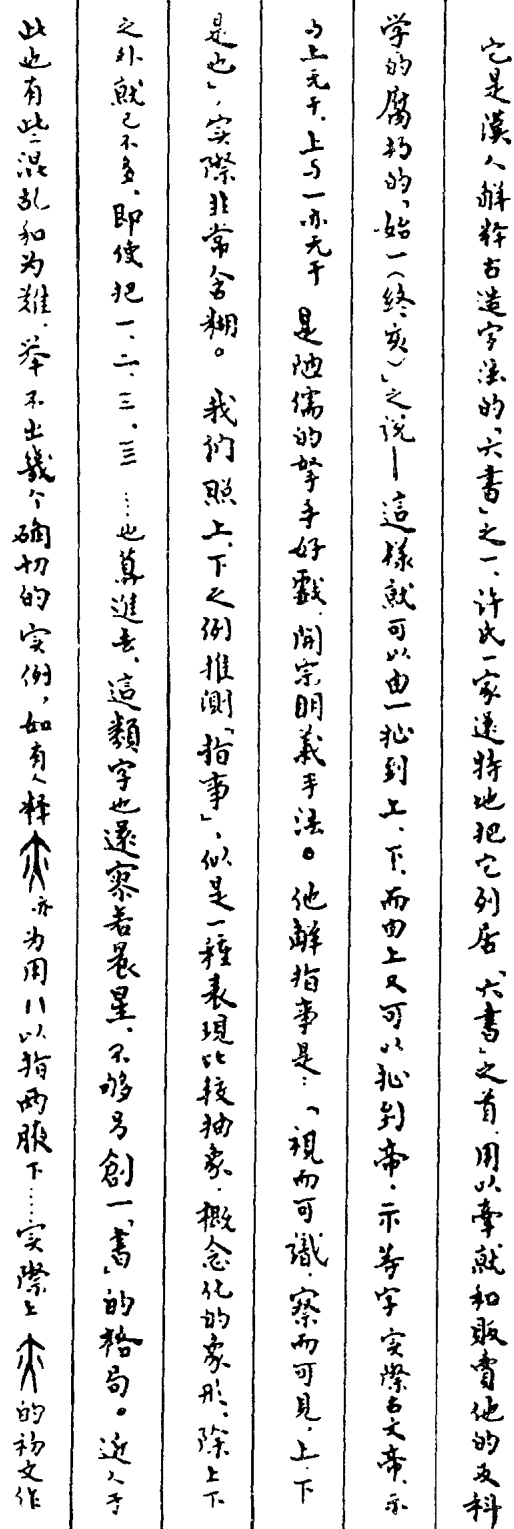 它是漢人解释古造字法的「六書」之一、许氏一家還特地把它列居「六書」之首、用以牽就和販賣他的反科
学的腐朽的「始一(终亥)」之说—這樣就可以由一扯到上、下、而由上又可以扯到帝、示等字实際古文帝、示
与上无干、上与一亦无干 是陋儒的拏手好戲、開宗明義手法。他解指事是:「視而可識、察而可見、上下
是也」,实際非常含糊。我们照上、下之例推測「指事」,似是一種表現比較抽象、概念化的象形、除上下
之外就已不多、即使把一、二、三、亖……也算進去、這類字也還寥若晨星、不够另創一「書」的格局。近人于
此也有些混乱和为難、举不出幾个确切的实例,如有人释亦为用八以指两腋下……实際上的初文作